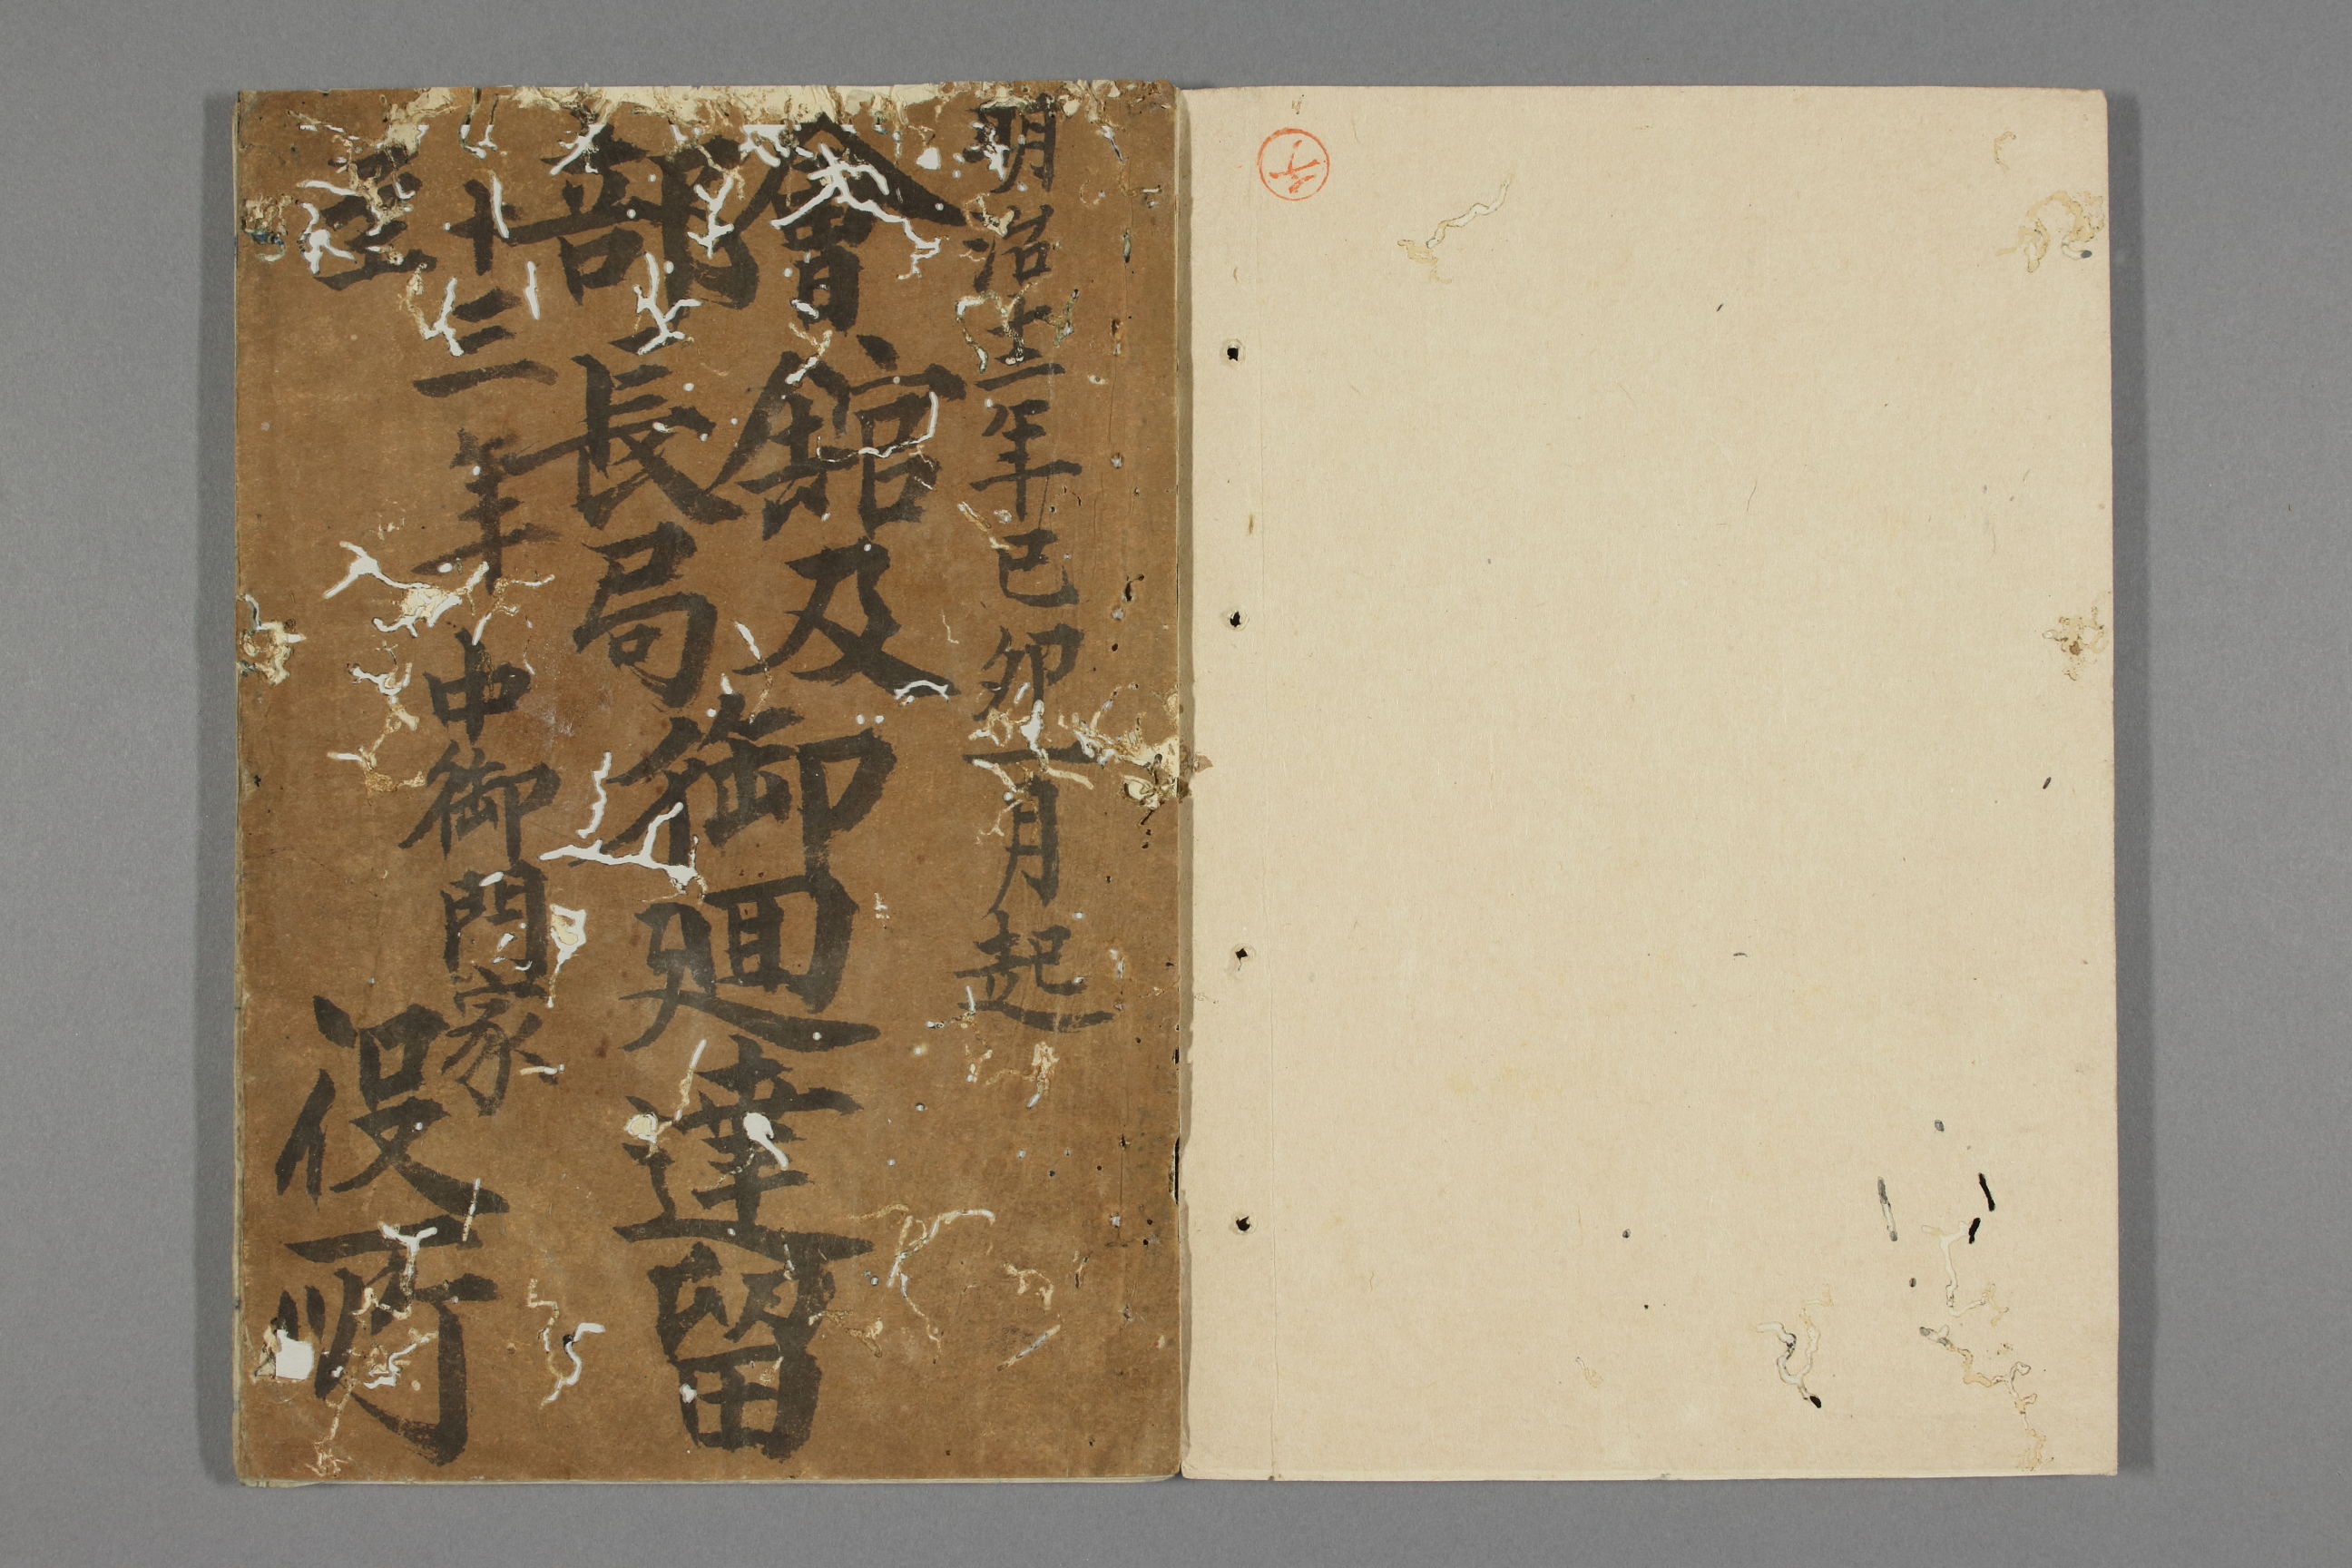 明治十二年己卯一月起
會館及
部長局
御廻達留
十三年
中御門家
役所